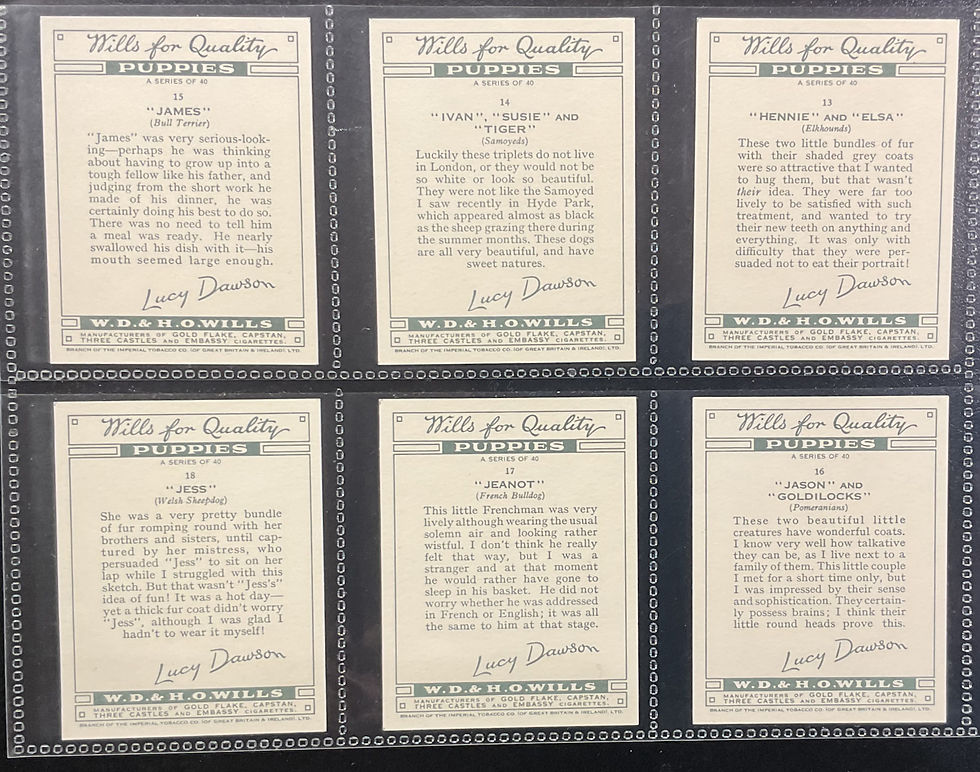 Wills for Quality
PUPPIES
A SERIES OF 40
15
"JAMES"
(Bull Terrier)
"James" was very serious-look-
ing—perhaps he was thinking
about having to grow up into a
tough fellow like his father, and
judging from the short work he
made of his dinner, he was
certainly doing his best to do so.
There was no need to tell him
a meal was ready. He nearly
swallowed his dish with it—his
mouth seemed large enough.
Lucy Dawson
W.D. & H.O. WILLS
MANUFACTURERS OF GOLD FLAKE, CAPSTAN,
THREE CASTLES AND EMBASSY CIGARETTES.
BRANCH OF THE IMPERIAL TOBACCO CO. (OF GREAT BRITAIN & IRELAND), LTD.
Wills for Quality
PUPPIES
A SERIES OF 40
14
"IVAN", "SUSIE" AND
"TIGER"
(Samoyeds)
Luckily these triplets do not live
in London, or they would not be
so white or look so beautiful.
They were not like the Samoyed
I saw recently in Hyde Park,
which appeared almost as black
as the sheep grazing there during
the summer months. These dogs
are all very beautiful, and have
sweet natures.
Lucy Dawson
W.D. & H.O. WILLS
MANUFACTURERS OF GOLD FLAKE, CAPSTAN,
THREE CASTLES AND EMBASSY CIGARETTES.
BRANCH OF THE IMPERIAL TOBACCO CO. (OF GREAT BRITAIN & IRELAND), LTD.
Wills for Quality
PUPPIES
A SERIES OF 40
13
"HENNIE" AND "ELSA"
(Elkhounds)
These two little bundles of fur
with their shaded grey coats
were so attractive that I wanted
to hug them, but that wasn't
their idea. They were far too
lively to be satisfied with such
treatment, and wanted to try
their new teeth on anything and
everything. It was only with
difficulty that they were per-
suaded not to eat their portrait!
Lucy Dawson
W.D. & H.O. WILLS
MANUFACTURERS OF GOLD FLAKE, CAPSTAN,
THREE CASTLES AND EMBASSY CIGARETTES.
BRANCH OF THE IMPERIAL TOBACCO CO. (OF GREAT BRITAIN & IRELAND), LTD.
Wills for Quality
PUPPIES
A SERIES OF 40
18
"JESS"
(Welsh Sheepdog)
She was a very pretty bundle
of fur romping round with her
brothers and sisters, until cap-
tured by her mistress, who
persuaded "Jess" to sit on her
lap while I struggled with this
sketch. But that wasn't "Jess's"
idea of fun! It was a hot day—
yet a thick fur coat didn't worry
"Jess", although I was glad I
hadn't to wear it myself!
Lucy Dawson
W.D. & H.O. WILLS
MANUFACTURERS OF GOLD FLAKE, CAPSTAN,
THREE CASTLES AND EMBASSY CIGARETTES.
BRANCH OF THE IMPERIAL TOBACCO CO. (OF GREAT BRITAIN & IRELAND), LTD.
Wills for Quality
PUPPIES
A SERIES OF 40
17
"JEANOT"
(French Bulldog)
This little Frenchman was very
lively although wearing the usual
solemn air and looking rather
wistful. I don't think he really
felt that way, but I was a
stranger and at that moment
he would rather have gone to
sleep in his basket. He did not
worry whether he was addressed
in French or English; it was all
the same to him at that stage.
Lucy Dawson
W.D. & H.O. WILLS
MANUFACTURERS OF GOLD FLAKE, CAPSTAN,
THREE CASTLES AND EMBASSY CIGARETTES.
BRANCH OF THE IMPERIAL TOBACCO CO. (OF GREAT BRITAIN & IRELAND), LTD.
Wills for Quality
PUPPIES
A SERIES OF 40
16
"JASON" AND
"GOLDILOCKS"
(Pomeranians)
These two beautiful little
creatures have wonderful coats.
I know very well how talkative
they can be, as I live next to a
family of them. This little couple
I met for a short time only, but
I was impressed by their sense
and sophistication. They certain-
ly possess brains; I think their
little round heads prove this.
Lucy Dawson
W.D. & H.O. WILLS
MANUFACTURERS OF GOLD FLAKE, CAPSTAN,
THREE CASTLES AND EMBASSY CIGARETTES.
BRANCH OF THE IMPERIAL TOBACCO CO. (OF GREAT BRITAIN & IRELAND), LTD.